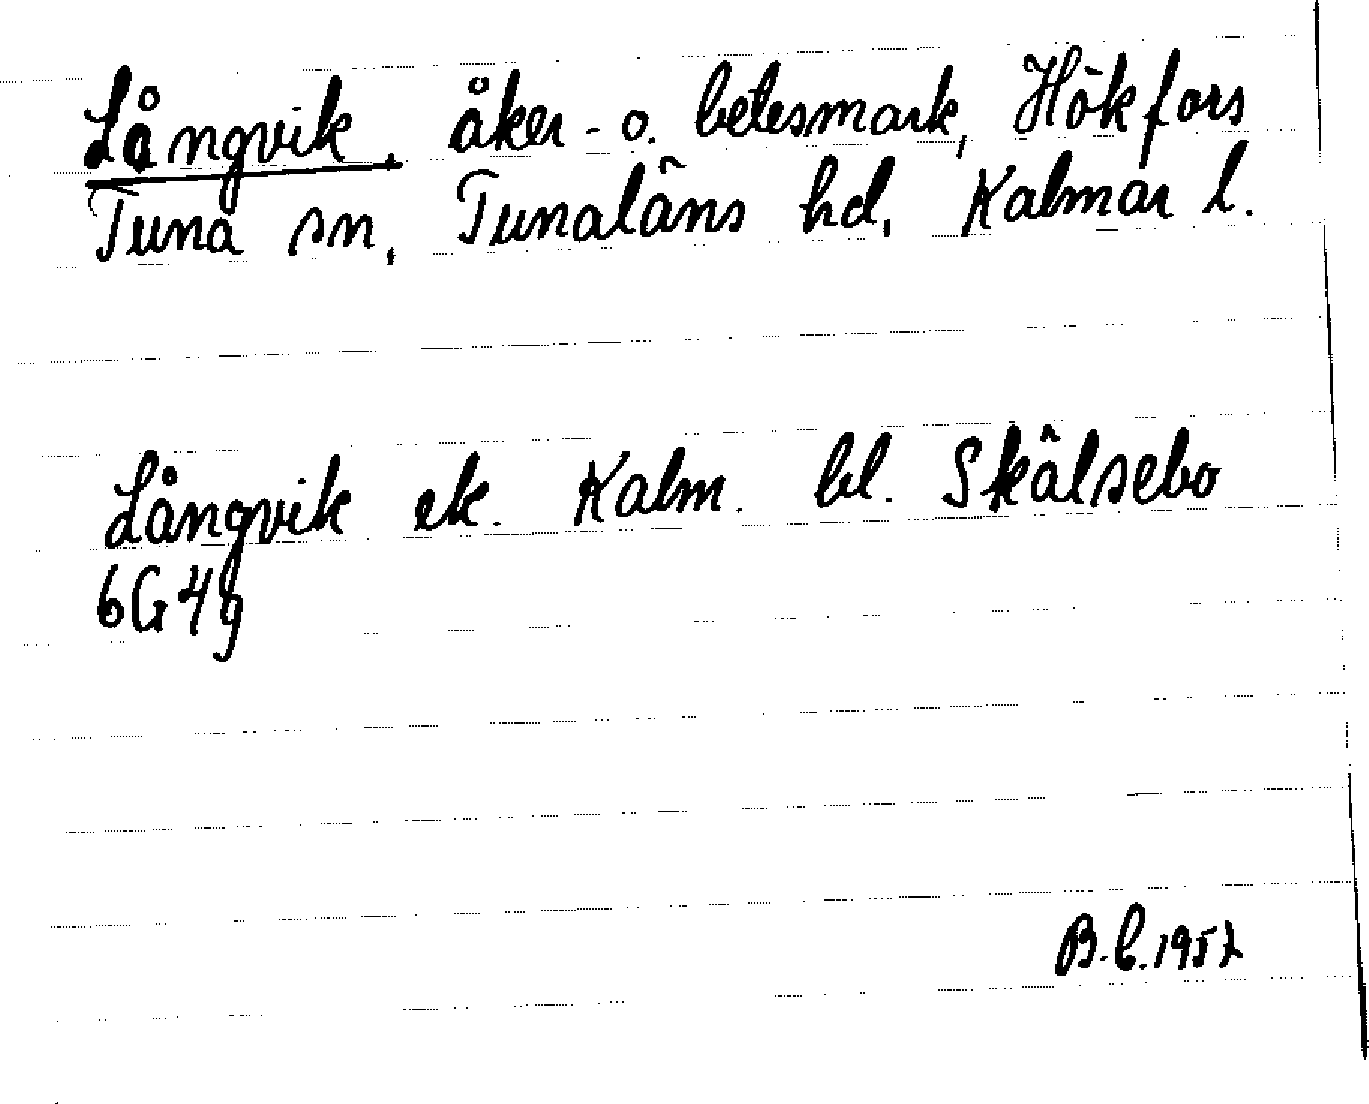 Långvik, åker- o. betesmark, Hökfors
Tuna sn, Tunaläns hd, Kalmar l.
Långvik ek. Kalm. bl. Skälsebo
6G4g
B.C. 1957